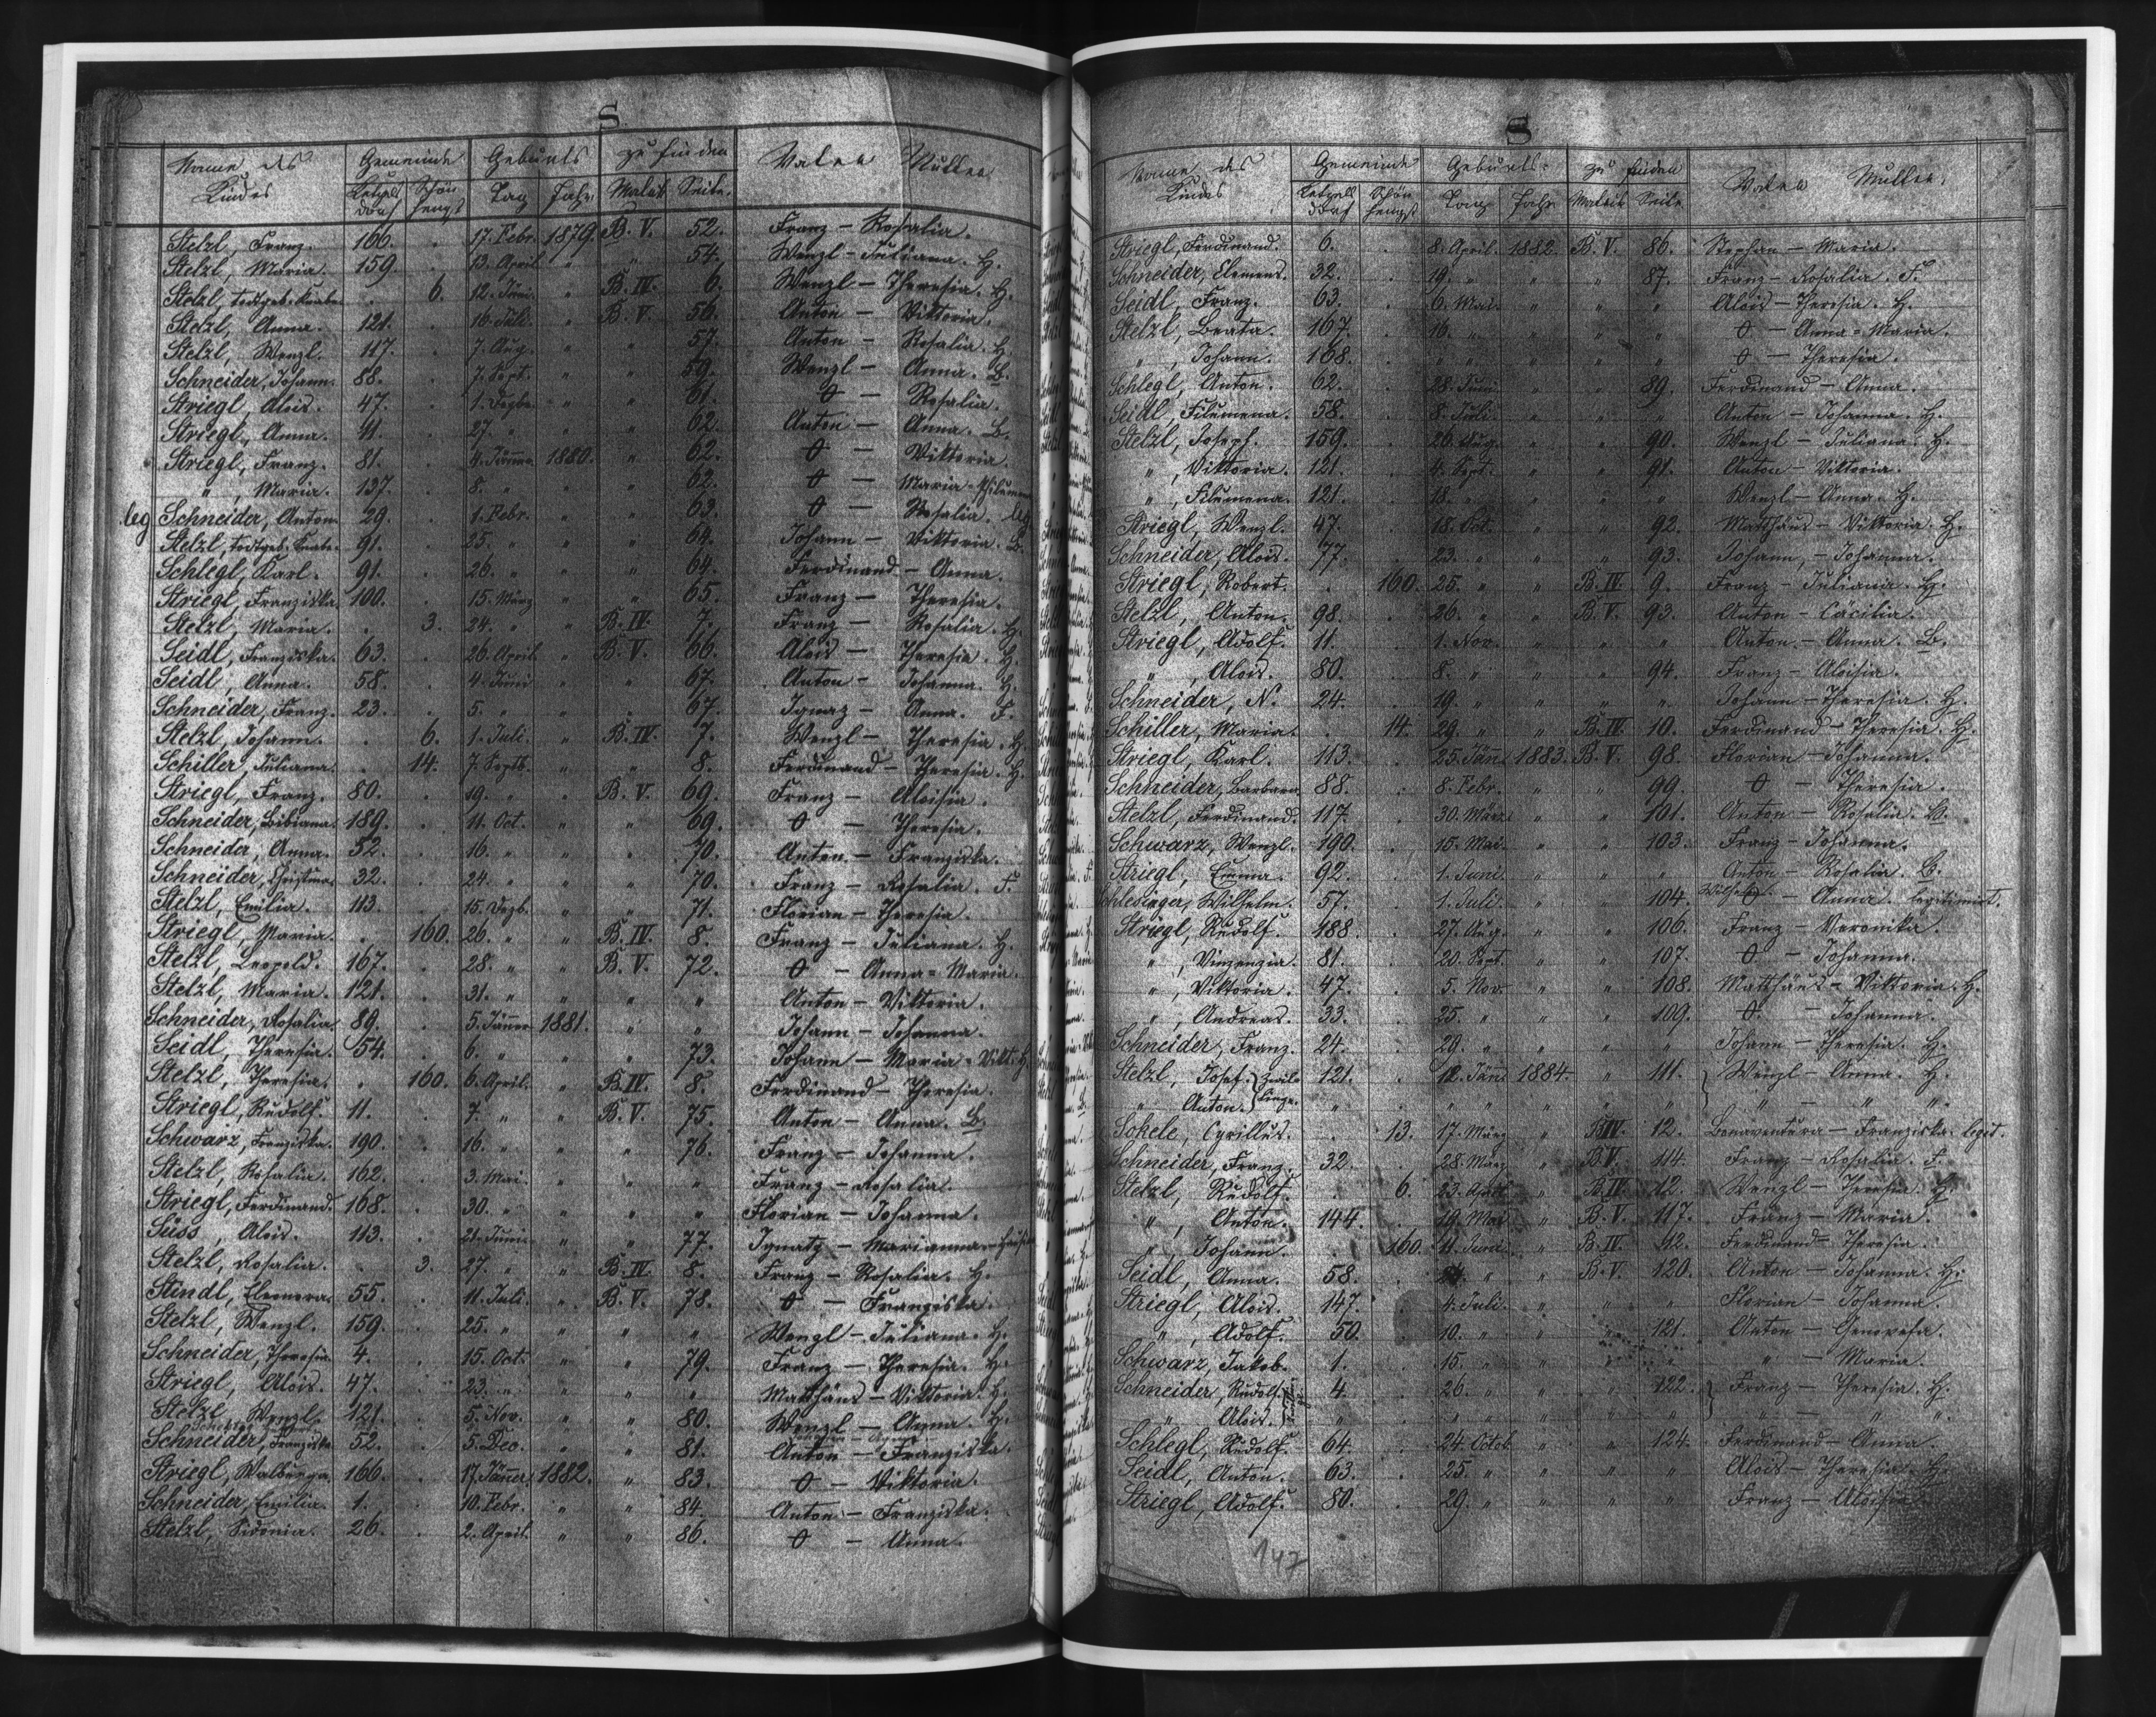 S
Name des Kindes Gemeinde Geburts zu finden Vater Mutter
Ketzelsdorf Schönhengst Tag Jahr Matrik Seite
Stelzl, Franz. 166. 17. Febr. 1879. B. V. 52. Franz – Rosalia.
Stelzl, Maria. 159. 13. April " " 54. Wenzl – Juliana. H.
Stelzl todtgeb. Knabe. 6. 12. Juni. " B. IV. 6. Wenzl – Theresia. H.
Stelzl, Anna. 121. 16. Juli. " B. V. 56. Anton – Viktoria.
Stelzl, Wenzl. 117. 7. Aug. " " 57. Anton – Rosalia. H.
Schneider, Johann. 88. 7. Sept. " " 59. Wenzl – Anna. B.
Striegl, Alois. 47. 1. Dezbr. " " 61. O – Rosalia.
Striegl, Anna. 11. 27. " " " 62. Anton – Anna. B.
Striegl, Franz. 81. 4. Jänner 1880. " 62. O – Viktoria.
" , Maria. 137. 8. " " " 62. O – Maria-Philumena
leg Schneider, Anton. 29. 1. Febr. " " 63. O – Rosalia. leg
Stelzl, todtgeb. Knabe. 91. 25. " " " 64. Johann – Viktoria. B.
Schlegl, Karl. 91. 26. " " " 64. Ferdinand – Anna.
Striegl, Franziska. 100. 15. März " " 65. Franz – Theresia.
Stelzl, Maria. 3. 24. " " B. IV. 7. Franz – Rosalia. H.
Seidl, Franziska. 63. 26. April. " B. V. 66. Alois – Theresia. H.
Seidl, Anna. 58. 4. Juni " " 67. Anton – Johanna. H.
Schneider, Franz. 23. 5. " " " 67. Ignaz – Anna. F.
Stelzl, Johann. 6. 1. Juli. " B. IV. 7. Wenzl – Theresia. H.
Schiller, Juliana. 14. 7. Septb. " " 8. Ferdinand – Theresia. H.
Striegl, Franz. 80. 19. " " B. V. 69. Franz – Aloisia.
Schneider, Bibiana. 189. 11. Oct. " " 69. O – Theresia.
Schneider, Anna. 52. 16. " " " 70. Anton – Franziska.
Schneider, Christina. 32. 24. " " " 70. Franz – Rosalia. F.
Stelzl, Emilia. 113. 15. Dezb. " " 71. Florian – Theresia.
Striegl, Maria. 160. 26. " " B. IV. 8. Franz – Juliana. H.
Stelzl, Leopold. 167. 28. " " B. V. 72. O – Anna-Maria.
Stelzl, Maria. 121. 31. " " " " Anton – Viktoria.
Schneider, Rosalia. 89. 5. Jänner 1881. " " Johann – Johanna.
Seidl, Theresia. 54. 6. " " " 73. Johann – Maria-Vikt. H.
Stelzl, Theresia. 160. 6. April. " B. IV. 8. Ferdinand – Theresia.
Striegl, Rudolf. 11. 7. " " B. V. 75. Anton – Anna. B.
Schwarz, Franziska. 190. 16. " " " 76. Franz – Johanna.
Stelzl, Rosalia. 162. 3. Mai. " " " Franz – Rosalia.
Striegl, Ferdinand. 168. 30. " " " " Florian – Johanna.
Süss, Alois. 113. 21. Juni " " 77. Ignatz – Marianna
Stelzl, Rosalia. 3. 27. " " B. IV. 8. Franz – Rosalia. H.
Stindl, Eleonora. 55. 11. Juli. " B. V. 78. O – Franziska.
Stelzl, Wenzl. 159. 25. " " " " Wenzl – Juliana. H.
Schneider, Theresia. 4. 15. Oct. " " 79. Franz – Theresia. H.
Striegl, Alois. 47. 23. " " " " Matthäus – Viktoria. H.
Stelzl, Wenzl. 121. 5. Nov. " " 80. Wenzl – Anna. H.
Schneider, Franziska. 52. 5. Dec. " " 81. Anton – Franziska.
Striegl, Walburga. 166. 17. Jänner 1882. " 83. O – Viktoria.
Schneider, Emilia. 1. 10. Febr. " " 84. Anton – Franziska.
Stelzl, Sidonia. 26. 2. April. " " 86. O – Anna.
S
Name des Kindes Gemeinde Geburts: zu finden Vater Mutter.
Ketzelsdorf Schönhengst Tag Jahr Matrik Seite
Striegl, Ferdinand. 6. 8. April. 1882. B. V. 86. Stephan – Maria.
Schneider, Clemens. 32. 19. " " " 87. Franz – Rosalia. F.
Seidl, Franz. 63. 6. Mai. " " " Alois – Theresia. H.
Stelzl, Beata. 167. 16. " " " " O – Anna-Maria.
" , Johann. 168. " " " " " O – Theresia.
Schlegl, Anton. 62. 28. Juni. " " 89. Ferdinand – Anna.
Seidl, Filumena. 58. 8. Juli. " " " Anton – Johanna. H.
Stelzl, Joseph. 159. 26. Aug. " " 90. Wenzl – Juliana. H.
" , Viktoria. 121. 4. Sept. " " 91. Anton – Viktoria.
" , Filumena. 121. 18. " " " " Wenzl – Anna. H.
Striegl, Wenzl. 47. 18. Oct. " " 92. Matthäus – Viktoria. H.
Schneider, Alois. 77. 23. " " " 93. Johann, – Johanna.
Striegl, Robert. 160. 25. " " B. IV. 9. Franz – Juliana. H.
Stelzl, Anton. 98. 26. " " B. V. 93. Anton – Cäcilia.
Striegl, Adolf. 11. 1. Nov. " " " Anton – Anna. B.
" , Alois. 80. 8. " " " 94. Franz – Aloisia.
Schneider, N. 24. 19. " " " " Johann – Theresia. H.
Schiller, Maria. 14. 29. " " B. IV. 10. Ferdinand – Theresia. H.
Striegl, Karl. 113. 25. Jän. 1883. B. V. 98. Florian – Johanna.
Schneider, Barbara. 88. 8. Febr. " " 99. O – Theresia.
Stelzl, Ferdinand. 117. 30. März " " 101. Anton – Rosalia.
Schwarz, Wenzl. 190. 15. Mai. " " 103. Franz – Johanna.
Striegl, Emma. 92. 1. Juni. " " " Anton – Rosalia. B.
Schlesinger, Wilhelm. 57. 1. Juli. " " 104. O – Anna. legitimirt.
Striegl, Rudolf. 188. 27. Aug. " " 106. Franz – Veronika.
" , Vinzenzia. 81. 20. Sept. " " 107. O – Johanna.
" , Viktoria. 47. 5. Nov. " " 108. Matthäus – Viktoria. H.
" , Andreas. 33. 25. " " " 109. O. – Johanna.
Schneider, Franz. 24. 29. " " " " Johann – Theresia. H.
Stelzl, Josef. Zwillinge. 121. 12. Jän. 1884. " 111. Wenzl – Anna. H.
" Anton. " " " " " " " – " "
Sokele, Cyrillus. 13. 17. März " B. IV. 12. Bonaventura – Franziska. legit.
Schneider, Franz. 32. 28. März " B. V. 114. Franz – Rosalia. F.
Stelzl, Rudolf. 6. 23. April " B. IV. 12. Wenzl – Theresia. H.
" , Anton. 144. 19. Mai " B. V. 117. Franz – Maria.
" , Johann. 160. 11. Juni " B. IV. 12. Ferdinand – Theresia.
Seidl, Anna. 58. " " B. V. 120. Anton – Johanna. H.
Striegl, Alois. 147. 4. Juli. " " " Florian – Johanna.
" , Adolf. 50. 10. " " 121. Anton – Genovefa.
Schwarz, Jakob. 1. 15. " " " " – Maria.
Schneider, Rudolf. 4. 26. " " 122. Franz – Theresia. H.
" Alois. " " " " " " – " "
Schlegl, Rudolf. 64. 24. Octob. " " 124. Ferdinand – Anna.
Seidl, Anton. 63. 25. " " " " Alois – Theresia. H.
Striegl, Adolf. 80. 29. " " " " Franz – Aloisia.
147